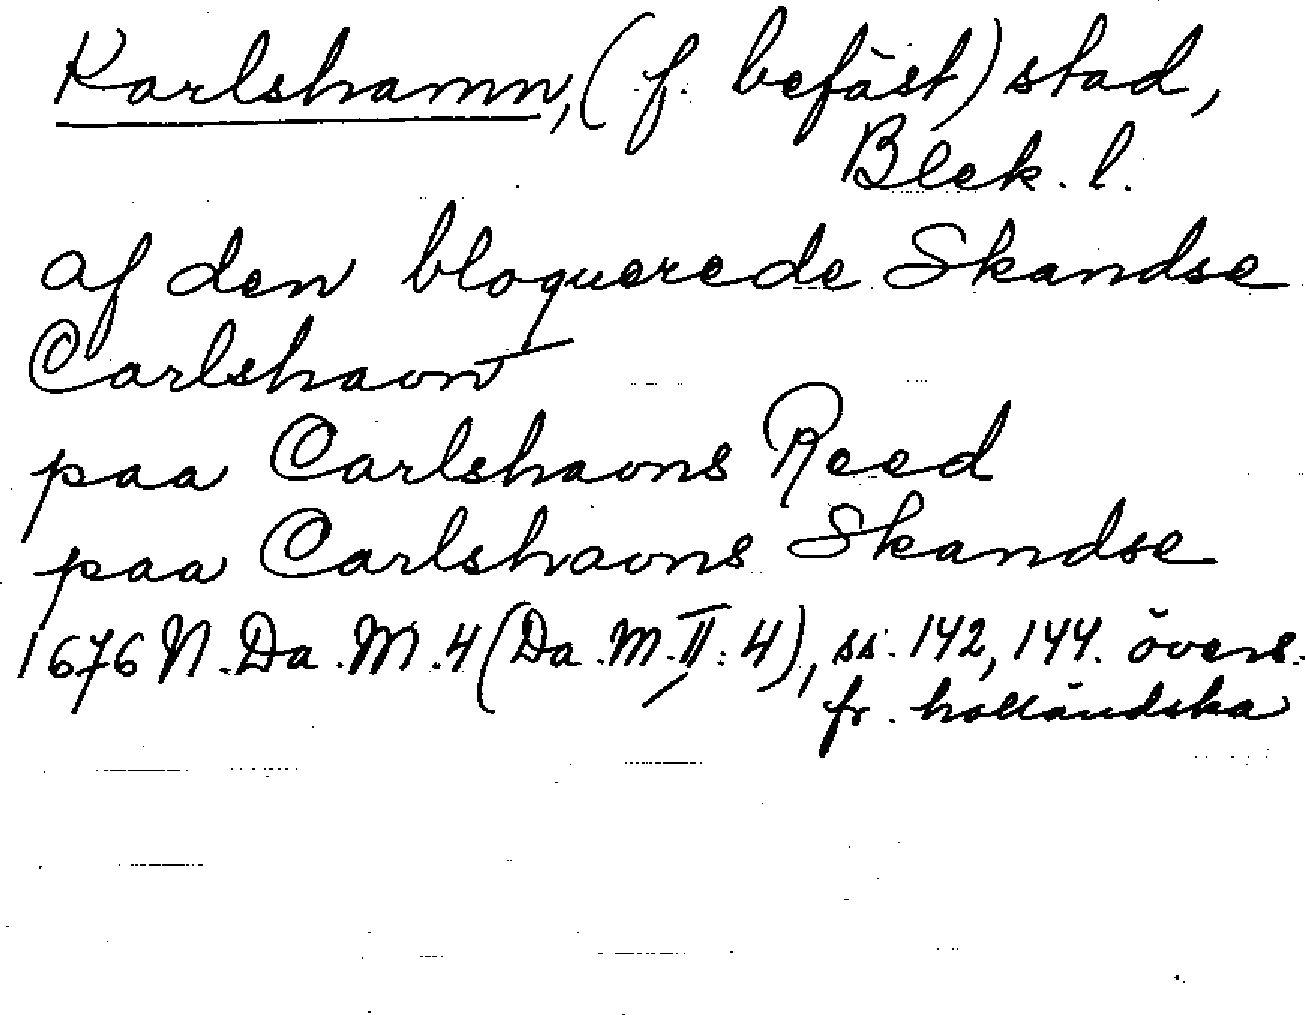 Karlshamn, (f. befäst) stad,
Blek. l.
af den bloquerede Skandse
Carlshavn
paa Carlshavns Reed
paa Carlshavns Skandse
1676 N. Da. M. 4 (Da. M. II: 4), ss. 142, 144. övers.
fr. holländska